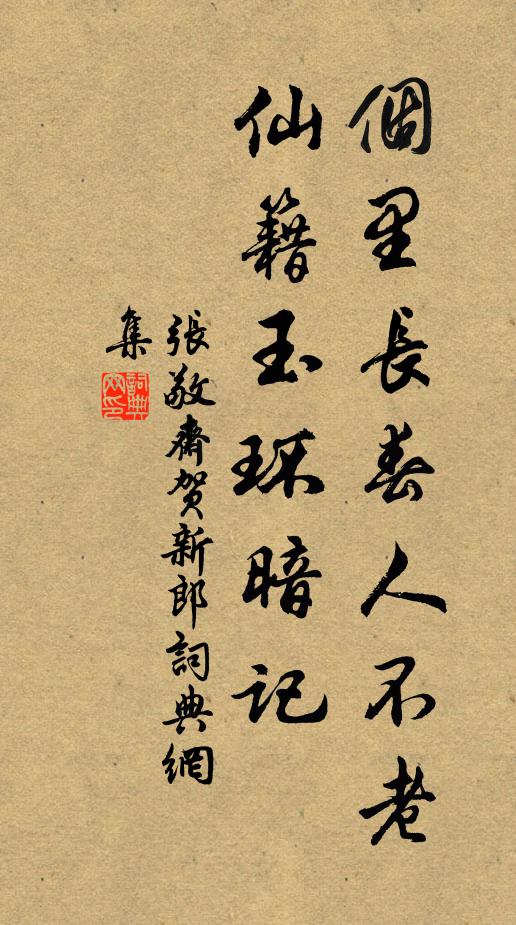 個里長春人不老
仙籍玉環暗記
張敬齋賀新郎詞典網
集
詞典網印